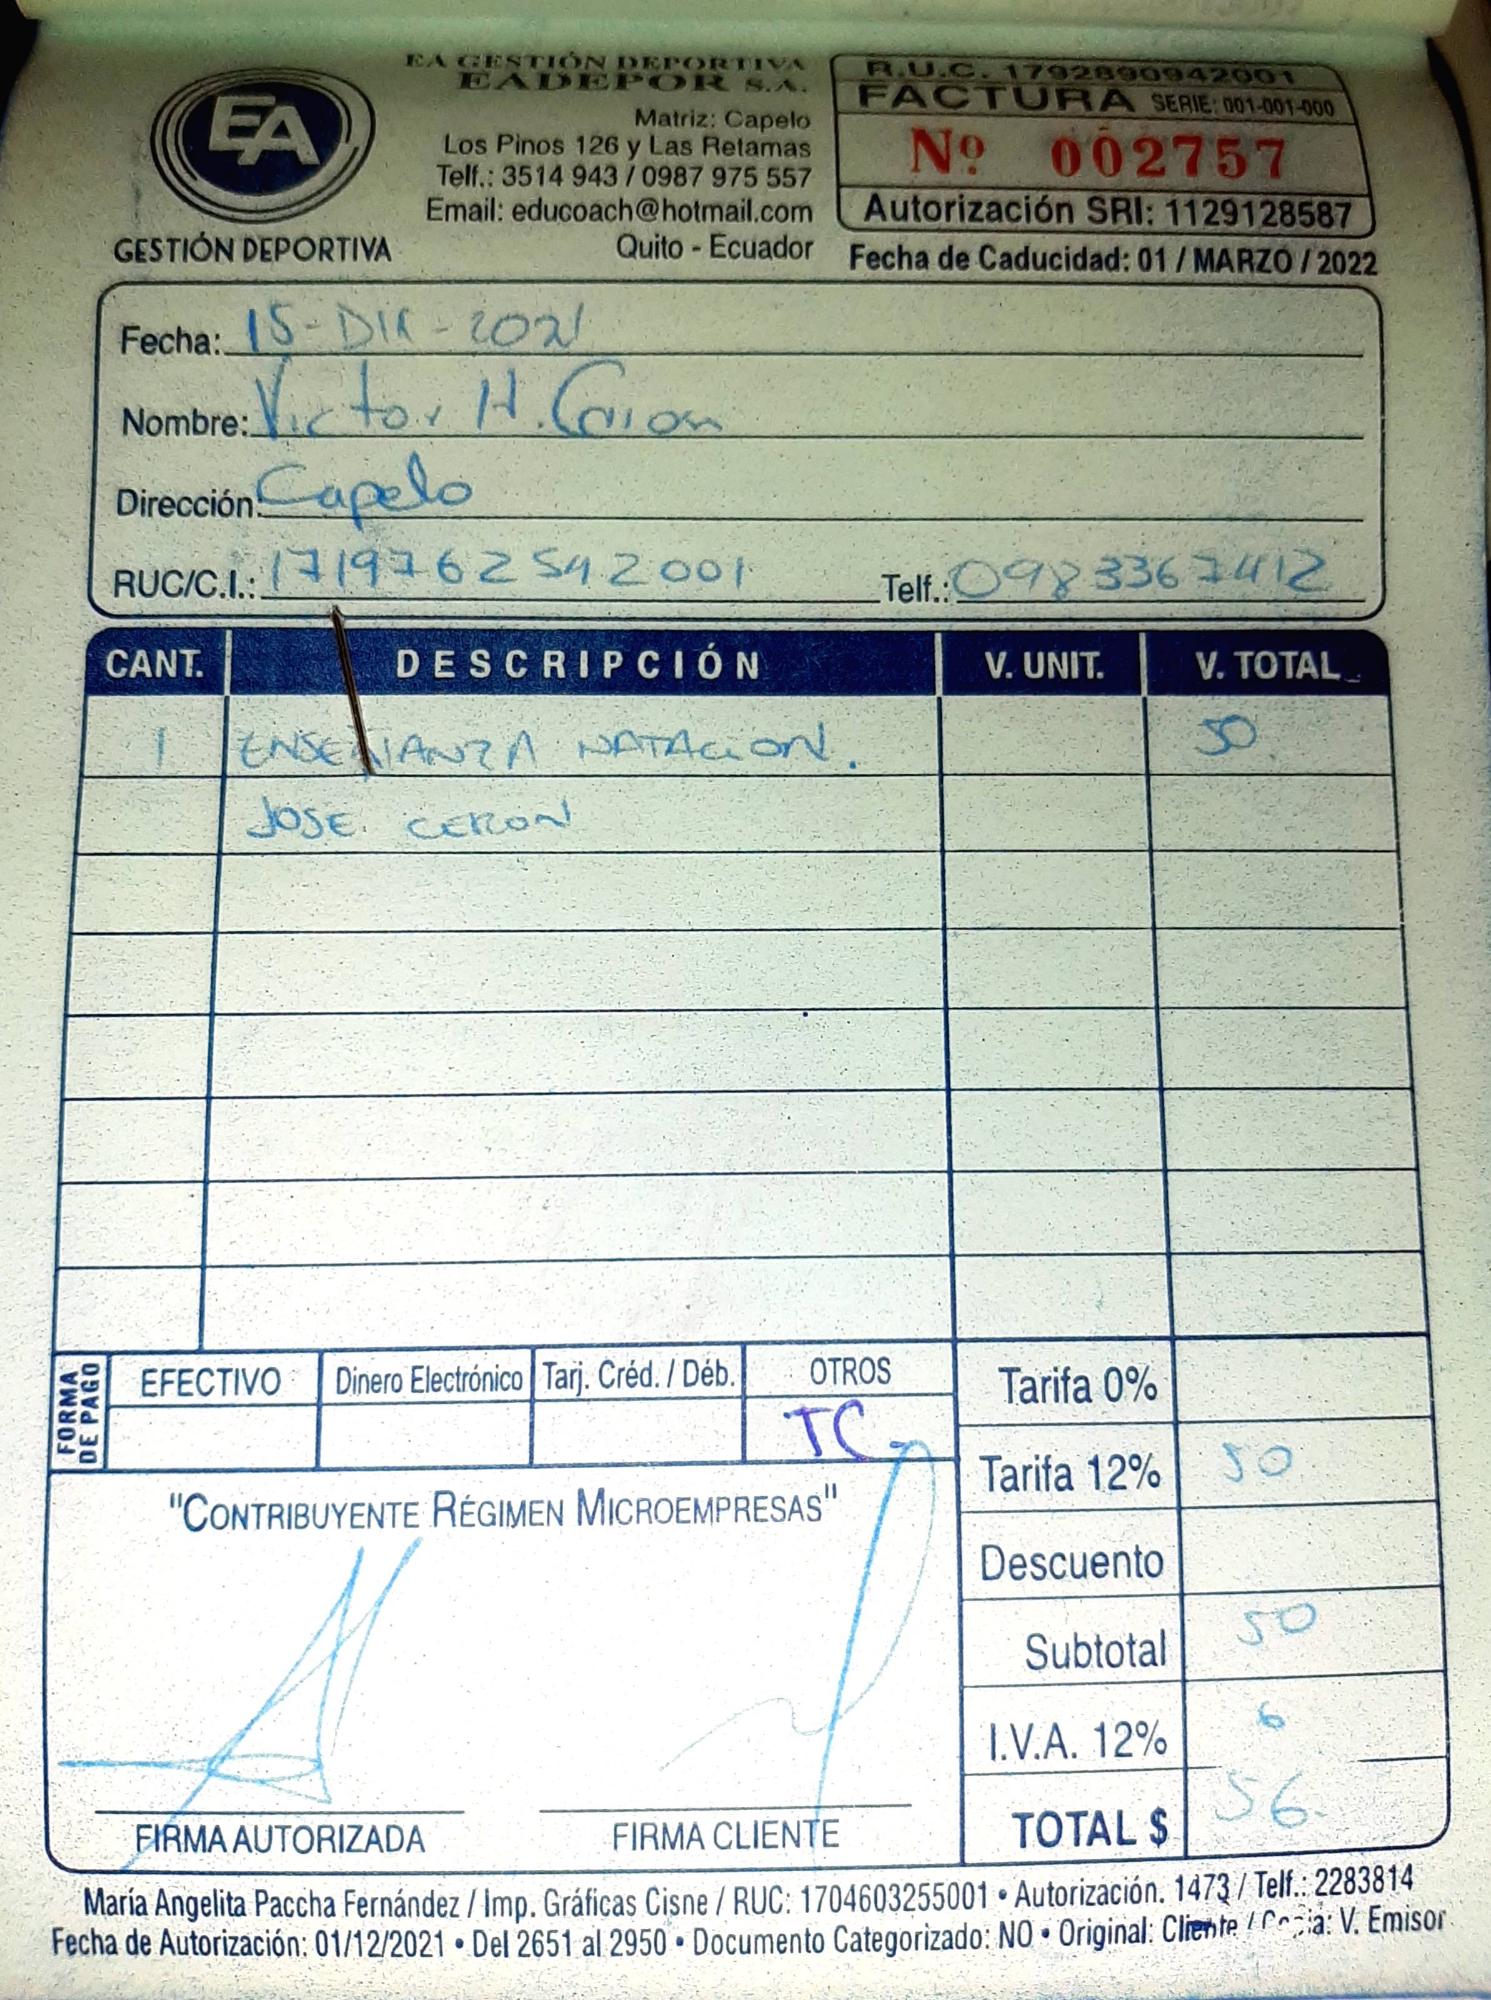 EA
GESTIÓN DEPORTIVA
EA GESTIÓN DEPORTIVA
EADEPOR S.A.
Matriz: Capelo
Los Pinos 126 y Las Retamas
Telf.: 3514 943 / 0987 975 557
Email: educoach@hotmail.com
Quito - Ecuador
R.U.C. 1792890942001
FACTURA SERIE: 001-001-000
Nº 002757
Autorización SRI: 1129128587
Fecha de Caducidad: 01 / MARZO / 2022
Fecha: 15-DIC-2021
Nombre: Victor H. Ceron
Dirección: Capelo
RUC/C.I.: 1719762542001 Telf.: 0983367412
CANT. DESCRIPCIÓN V. UNIT. V. TOTAL
1 ENSEÑANZA NATACION. 50.
JOSE. CERON
FORMA DE PAGO
EFECTIVO Dinero Electrónico Tarj. Créd. / Déb. OTROS
TC
Tarifa 0%
Tarifa 12% 50.
Descuento
Subtotal 50
I.V.A. 12% 6
TOTAL $ 56.
"CONTRIBUYENTE RÉGIMEN MICROEMPRESAS"
FIRMA AUTORIZADA FIRMA CLIENTE
María Angelita Paccha Fernández / Imp. Gráficas Cisne / RUC: 1704603255001 • Autorización. 1473 / Telf.: 2283814
Fecha de Autorización: 01/12/2021 • Del 2651 al 2950 • Documento Categorizado: NO • Original: Cliente / Copia: V. Emisor